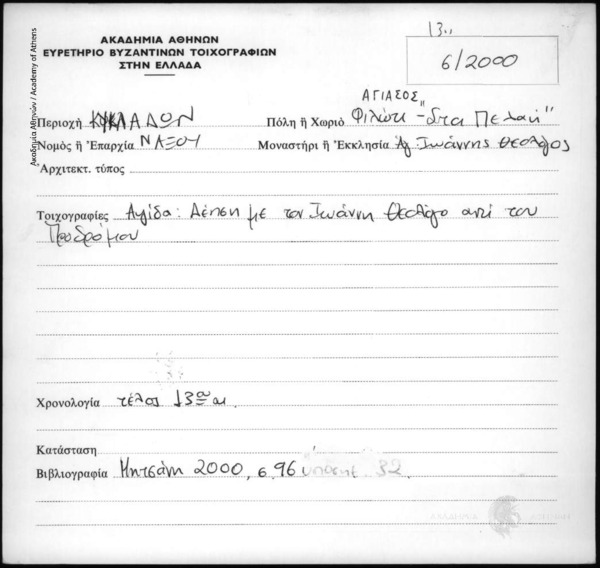 13..
ΑΚΑΔΗΜΙΑ ΑΘΗΝΩΝ
ΕΥΡΕΤΗΡΙΟ ΒΥΖΑΝΤΙΝΩΝ ΤΟΙΧΟΓΡΑΦΙΩΝ
ΣΤΗΝ ΕΛΛΑΔΑ
6/2000
Ακαδημία Αθηνών / Academy of Athens
ΑΓΙΑΣΟΣ
Περιοχή ΚΥΚΛΑΔΩΝ Πόλη ἤ Χωριό Φιλώτι - "Στα Πελαή"
Νομός ἤ Ἐπαρχία ΝΑΞΟΥ Μοναστήρι ἤ Ἐκκλησία Αγ. Ιωάννης Θεολόγος
Ἀρχιτεκτ. τύπος
Τοιχογραφίες Αψίδα: Δέηση με τον Ιωάννη Θεολόγο αντί του
Προδρόμου
Χρονολογία τέλος 13ου αι.
Κατάσταση
Βιβλιογραφία Μητσάνη 2000, σ. 96 υποσημ. 32